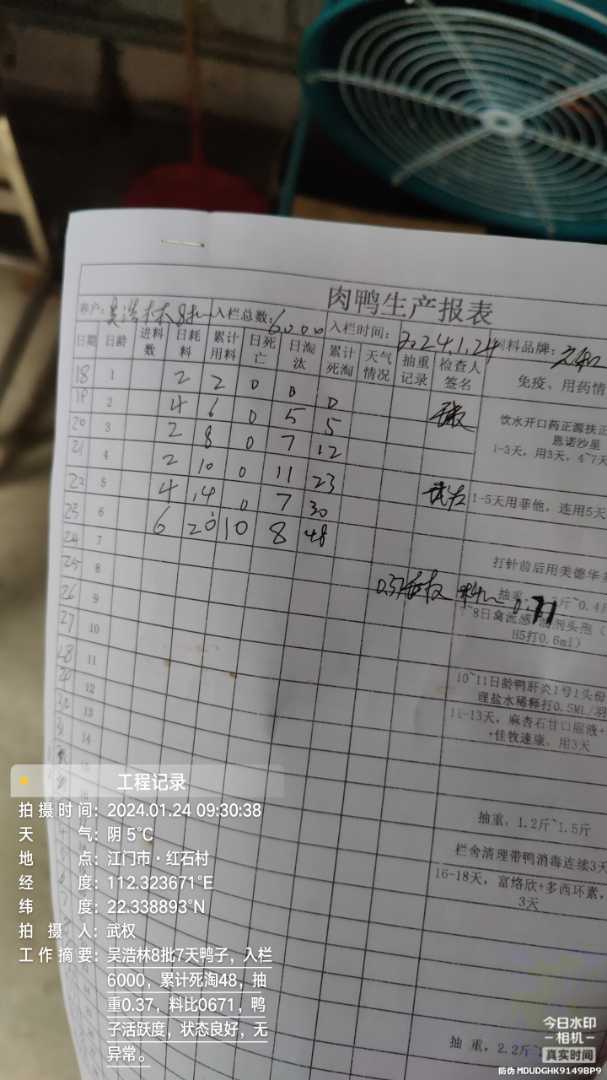 肉鸭生产报表
客户: 吴浩林8批 入栏总数: 6000 入栏时间: 2024.1.24 饲料品牌:
日期 日龄 进料数 日耗料 累计用料 日死亡 日淘汰 累计死淘 天气情况 抽重记录 检查人签名 免疫、用药情
18 1 2 2 0 0 0
19 2 4 6 0 5 5
20 3 2 8 0 7 12
21 4 2 10 0 11 23
22 5 4 14 0 7 30
23 6 6 20 10 8 48
24 7
25 8
26 9
27 10
28 11
12
13
14
15
饮水开口药正源扶正
恩诺沙星
1-3天,用3天,4~7天
1-5天用菲他,连用5天
打针前后用美德华
抽重, 斤~0.4斤
8日禽流感
H5打0.6ml)
10~11日龄鸭肝炎1号1头份
理盐水稀释打0.5ML/羽
11-13天,麻杏石甘口服液+
+佳牧速康,用3天
抽重,1.2斤~1.5斤
栏舍清理带鸭消毒连续3天
16-18天,富络欣+多西环素,
3天
抽 重,2.2斤~
工程记录
拍摄时间: 2024.01.24 09:30:38
天 气: 阴 5℃
地 点: 江门市·红石村
经 度: 112.323671°E
纬 度: 22.338893°N
拍 摄 人: 武权
工作摘要: 吴浩林8批7天鸭子,入栏
6000,累计死淘48,抽
重0.37,料比0671,鸭
子活跃度,状态良好,无
异常。
今日水印
相机
真实时间
防伪 MDUDGHK9149BP9